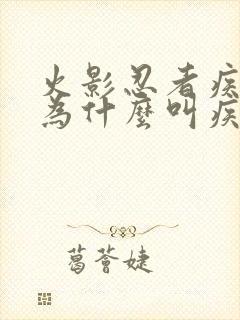 火影忍者疾
為什麼叫疾
葛薈婕